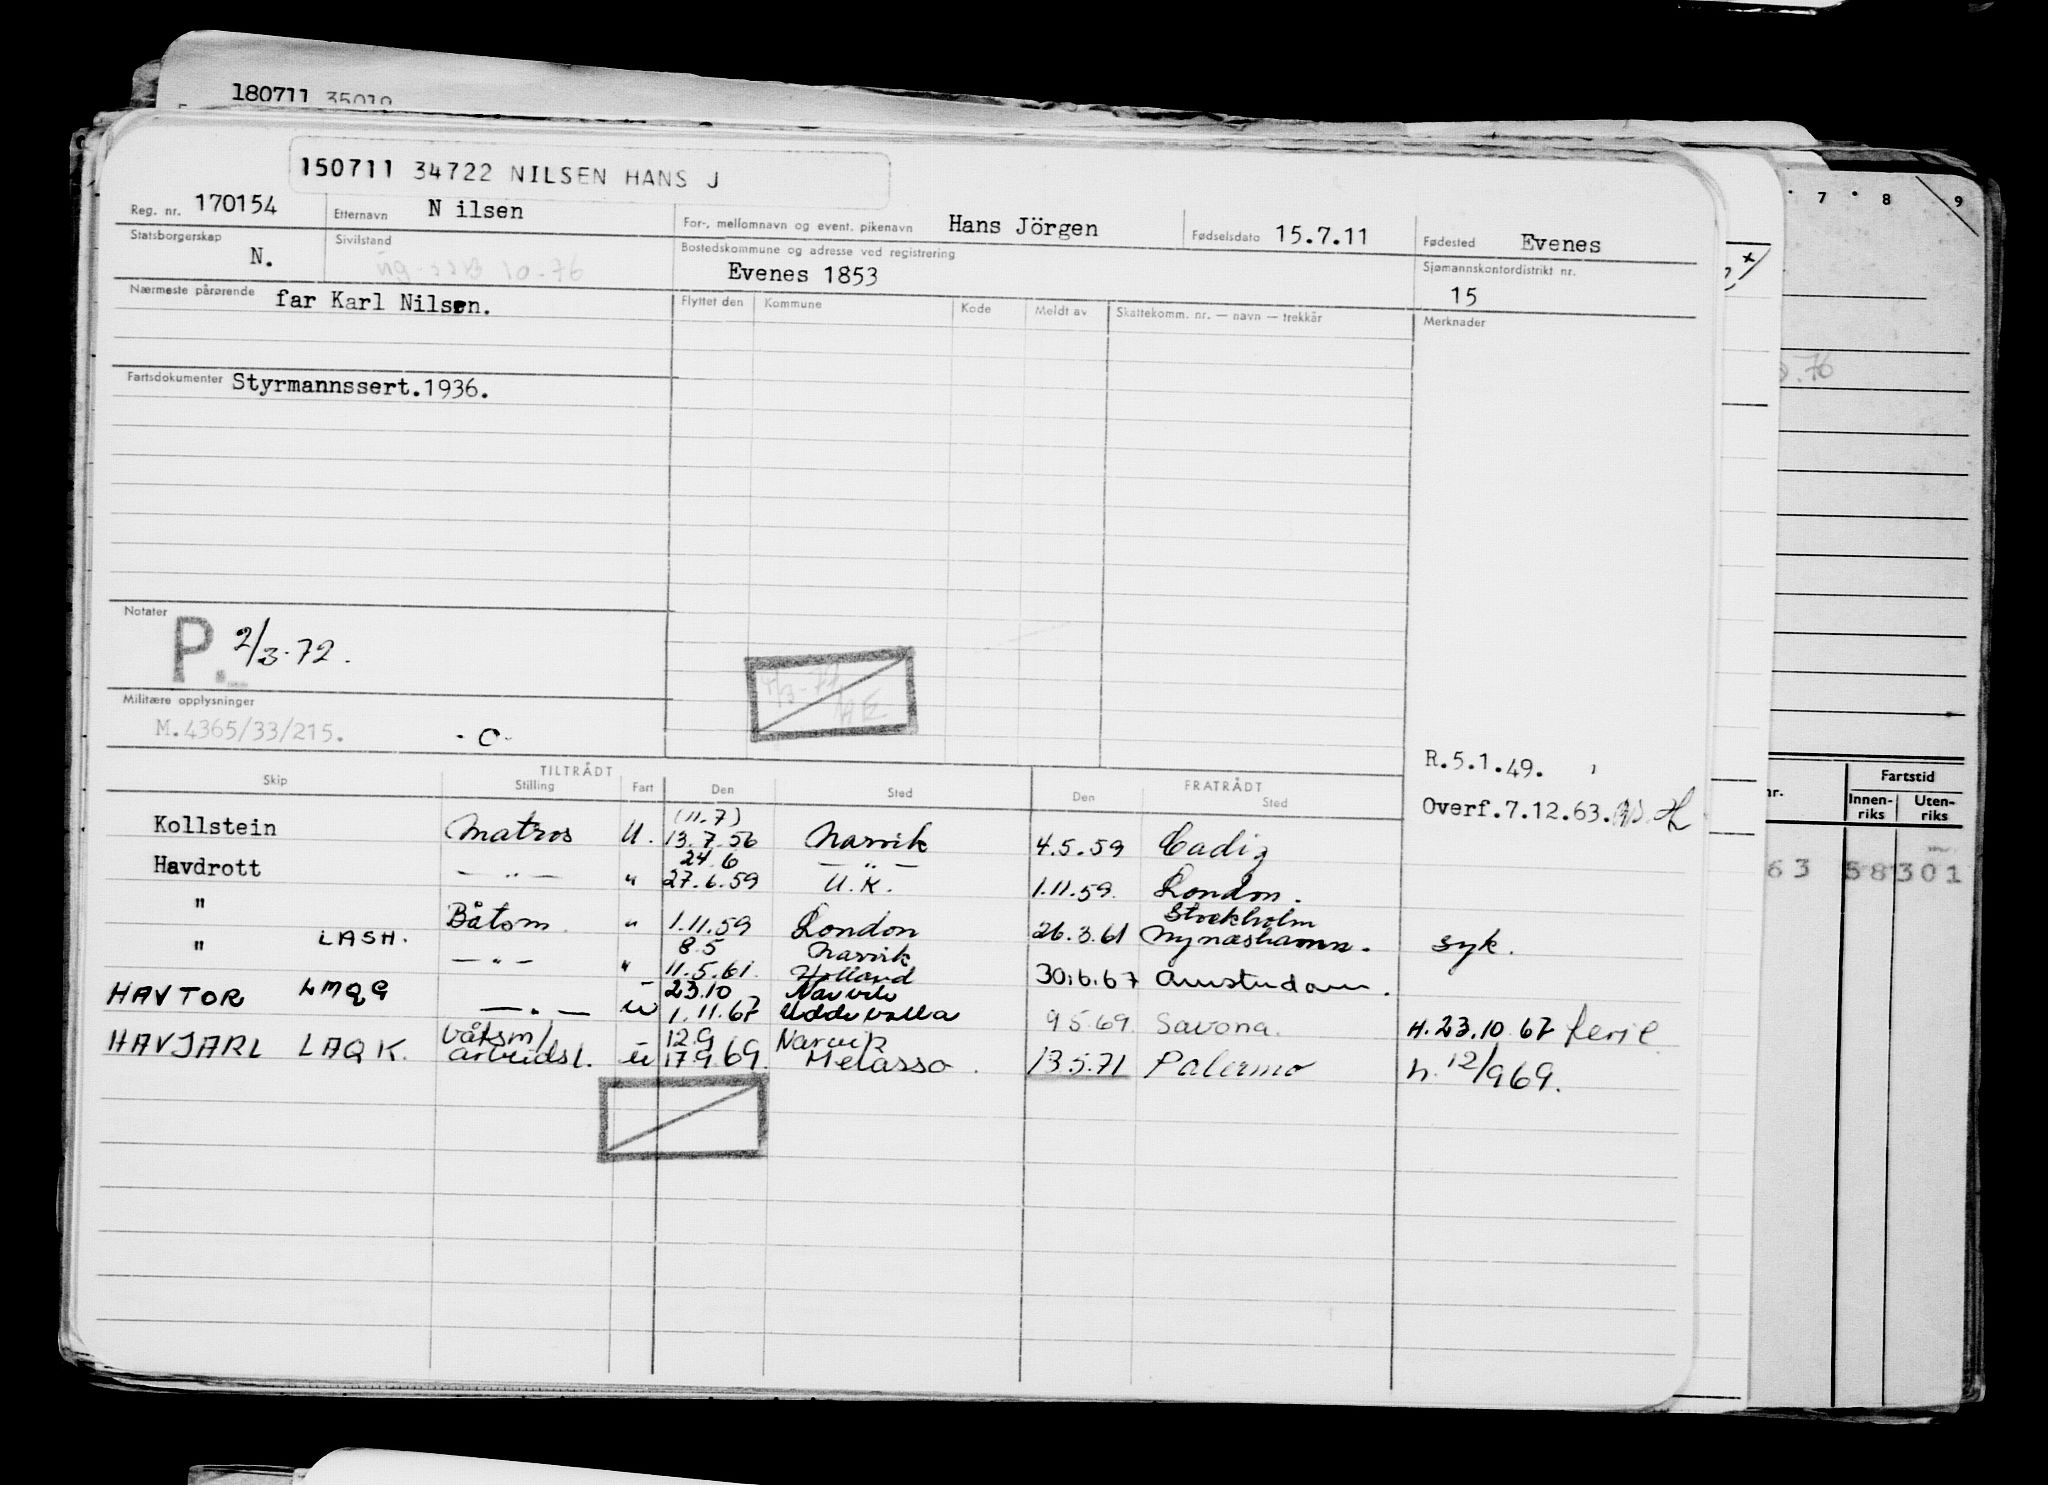 180711 35019
150711 34722 NILSEN HANS J
Reg. nr. 170154 Etternavn N ilsen For-, mellomnavn og event. pikenavn Hans Jörgen Fødselsdato 15.7.11 Fødested Evenes
Statsborgerskap N. Sivilstand Bostedskommune og adresse ved registrering Evenes 1853 Sjømannskontordistrikt nr. 15
Nærmeste pårørende far Karl Nilsen. Flyttet den Kommune Kode Meldt av Skattekomm. nr. — navn — trekkår Merknader
Fartsdokumenter Styrmannssert.1936.
Notater
P. 2/3-72.
Militære opplysninger
M.4365/33/215. - C -
R.5.1.49.
Overf.7.12.63.
TILTRÅDT FRATRÅDT
Skip Stilling Fart Den Sted Den Sted
(11.7)
Kollstein Matros U. 13.7.56 Narvik 4.5.59 Cadiz
24.6 — " —
Havdrott — " — " 27.6.59 U.K. 1.11.59. London.
Stockholm
" Båtsm. " 1.11.59 London 26.3.61 Nynæshamn. syk.
8.5 Narvik
" LASH. — " — " 11.5.61. Holland 30.6.67 Amsterdam.
23.10 Narvik
HAVTOR LMQG — " — u 1.11.67 Uddevalla 9.5.69. Savona. H. 23.10.67 ferie
båtsm/ 12.9 Narvik
HAVJARL LAQK. arbeidsl. u 17.9.69. Melasso. 13.5.71 Palermo h. 12/9 69.
7 8 9
nr. Fartstid
Innen-riks Uten-riks
63 58301